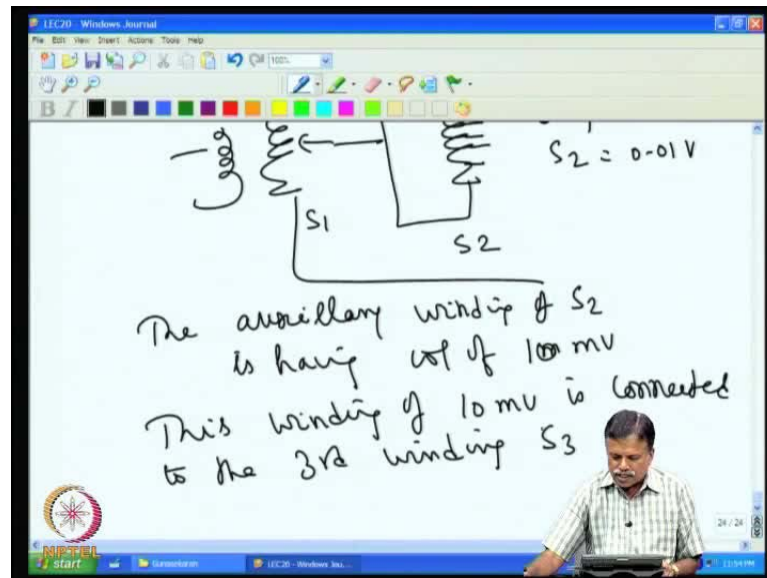 LEC20 - Windows Journal
File Edit View Insert Actions Tools Help
100%
B I
S2 = 0.01 V
S1
S2
The auxillary winding of S2
is having vol of 100 mV
This winding of 10 mV is connected
to the 3rd winding S3
24 / 24
NPTEL
start
Gunasekaran
LEC20 - Windows Jou...
11:54 PM